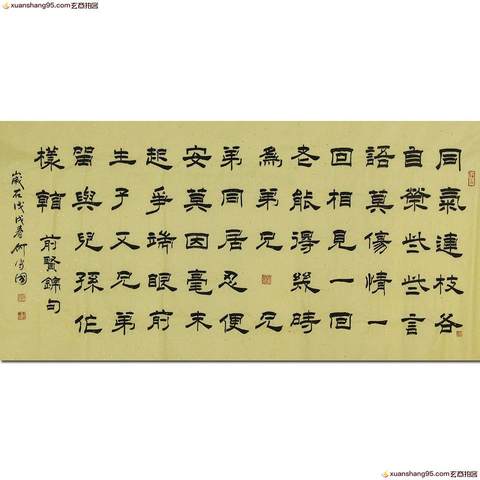 xuanshang95.com玄商拍客
同氣連枝各
自榮些些言
語莫傷情一
回相見一回
老能得幾時
為弟兄兄
弟同居忍便
安莫因毫末
起爭端眼前
生子又兄弟
留與兒孫作
樣看 前賢錦句
歲在戊戌春
xuanshang95.com玄商拍客